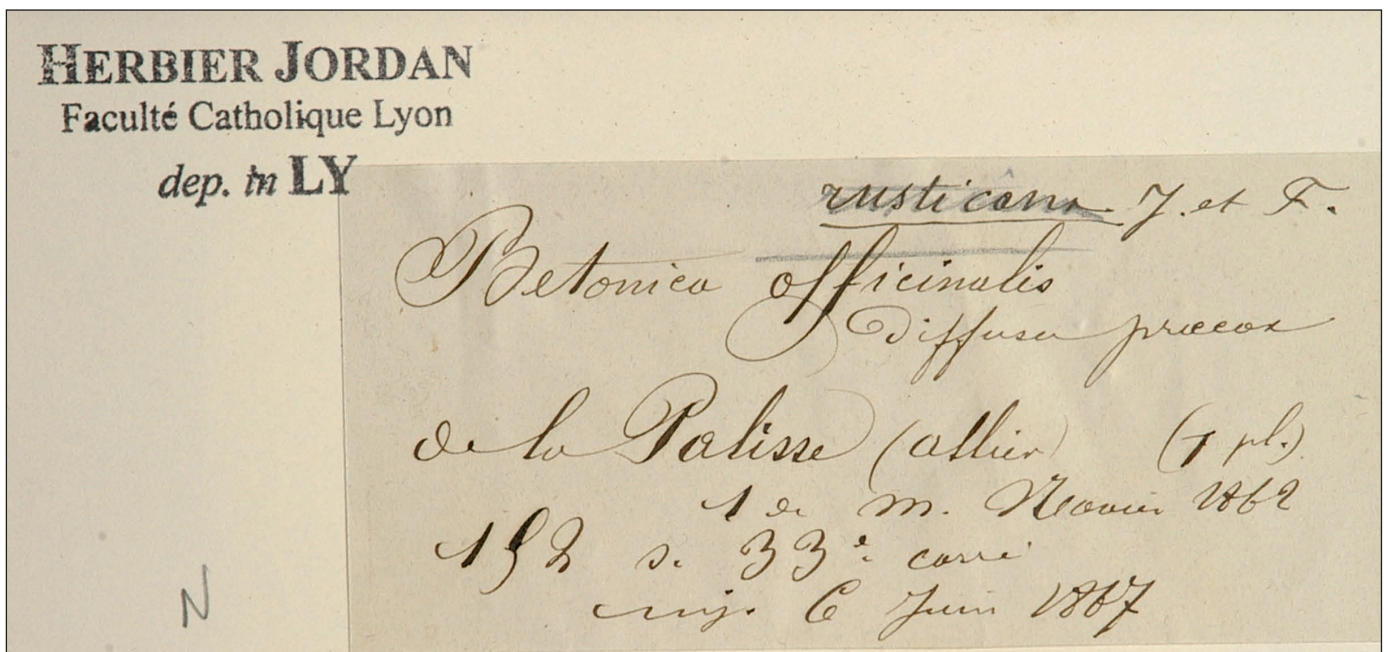 HERBIER JORDAN
Faculté Catholique Lyon
dep. in LY
rusticana J. et F.
Betonica officinalis
diffusa præcox
de la Palisse (allier) (1 pl.)
1 de m. 1862
152 s. 33e. carré
6 Juin 1867
N